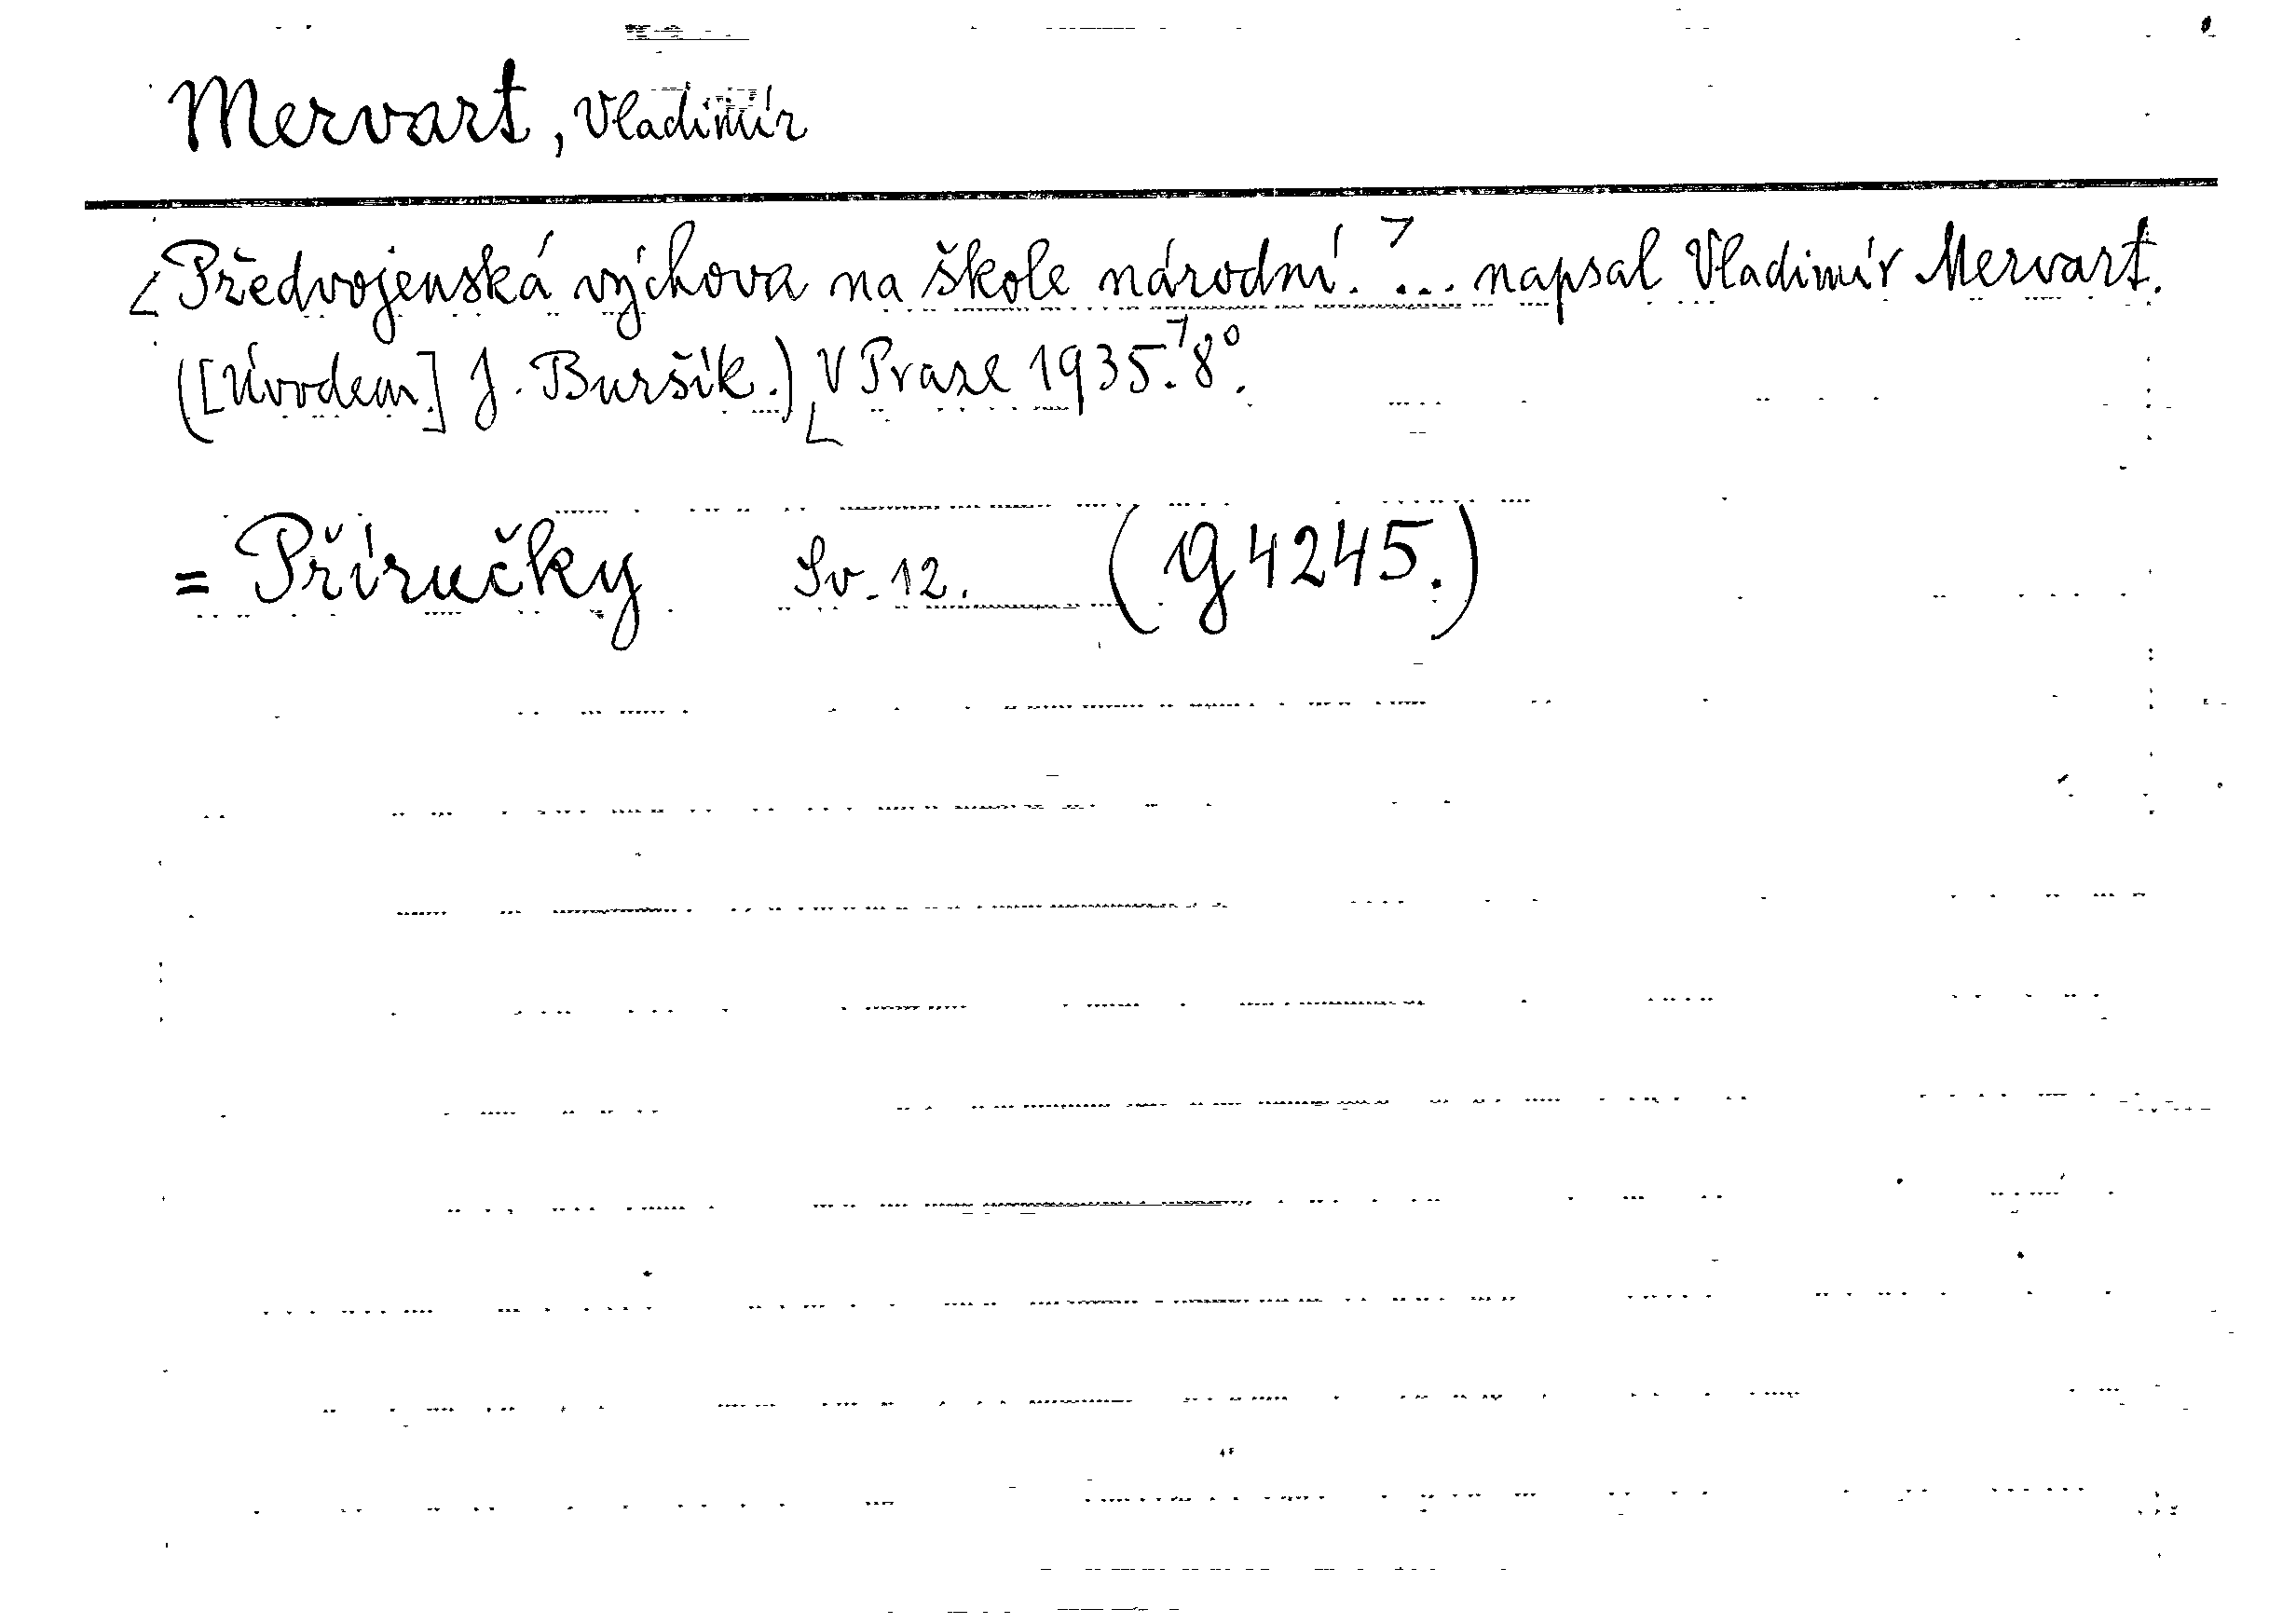 Mervart, Vladimír
Předvojenská výchova na škole národní. ... napsal Vladimír Mervart.
([Úvodem.] J. Buršík.) V Praze 1935. 8°.
= Příručky Sv. 12. (g 4245.)